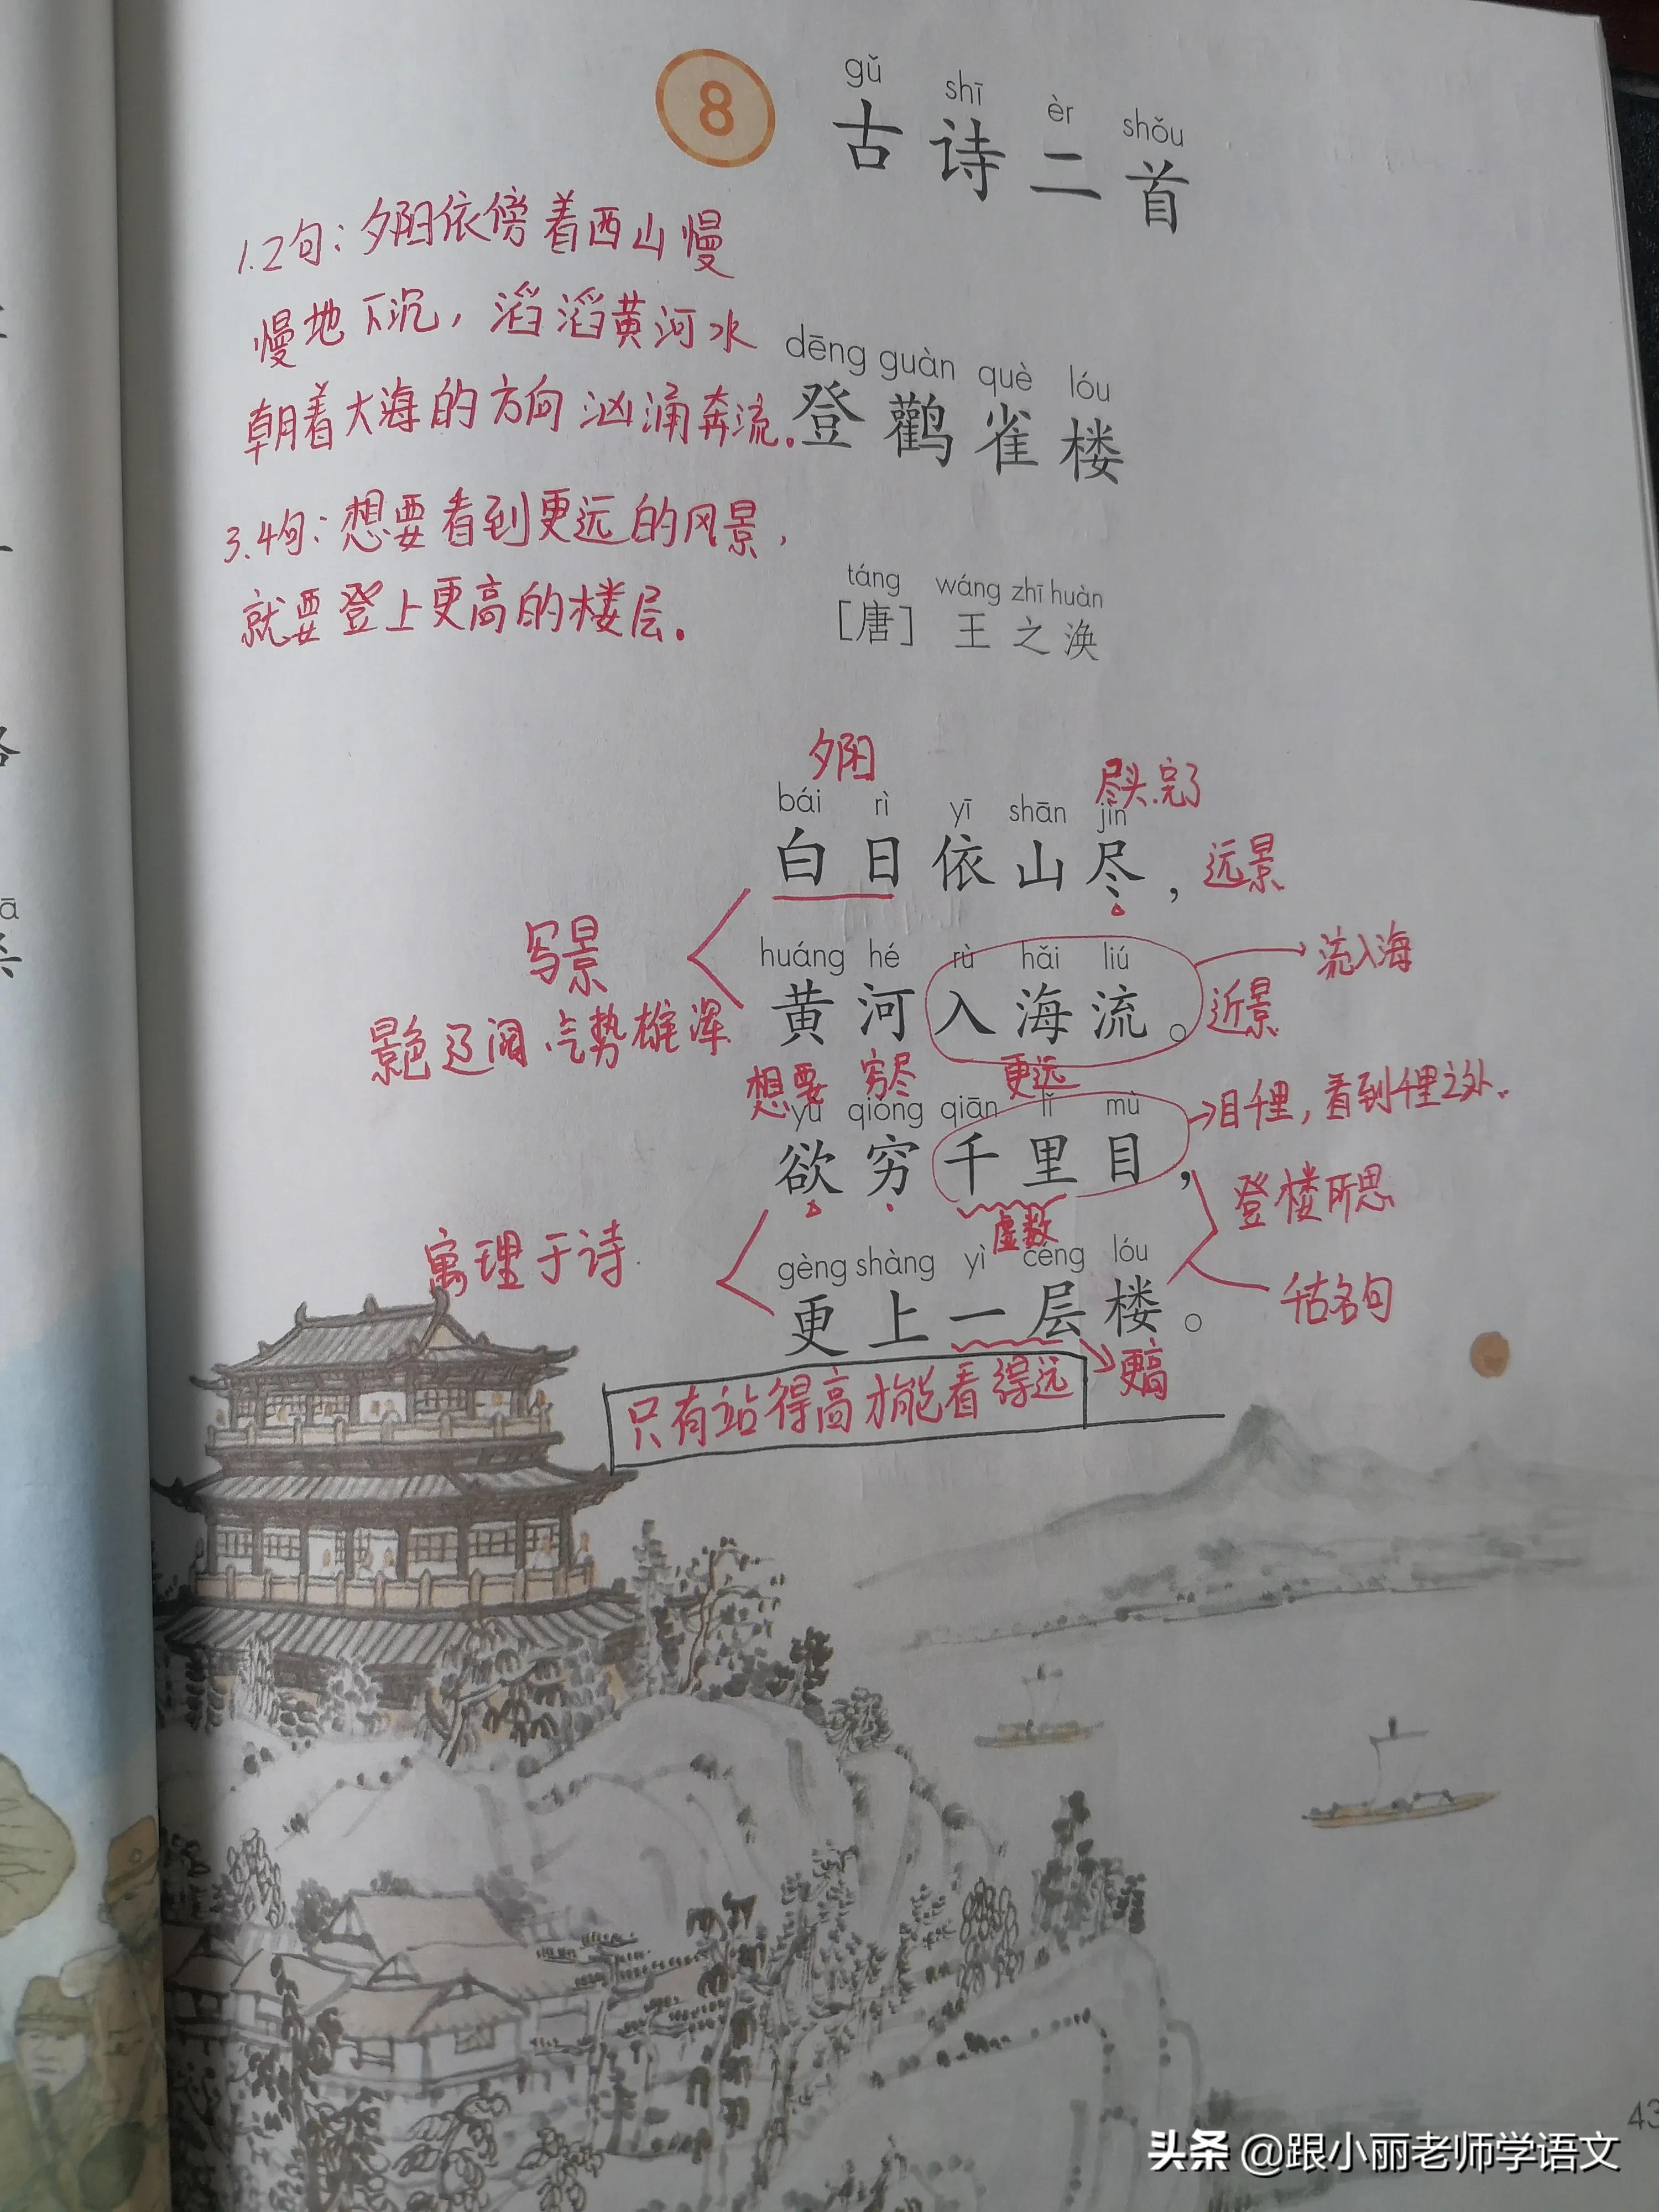 8
gǔ shī èr shǒu
古诗二首
1.2句：夕阳依傍着西山慢
慢地下沉，滔滔黄河水
朝着大海的方向汹涌奔流。
dēng guàn què lóu
登鹳雀楼
3.4句：想要看到更远的风景，
就要登上更高的楼层。
táng wáng zhī huàn
［唐］王之涣
夕阳
尽头.完了
bái rì yī shān jìn
白日依山尽，
远景
写景
huáng hé rù hǎi liú
流入海
黄河入海流。
近景
景色辽阔、气势雄浑
想要 穷尽 更远
yù qióng qiān lǐ mù
→目千里，看到千里之外.
欲穷千里目，
登楼所思
虚数
寓理于诗.
gèng shàng yì céng lóu
更上一层楼。
千古名句
更高
只有站得高才能看得远
43
头条 @跟小丽老师学语文